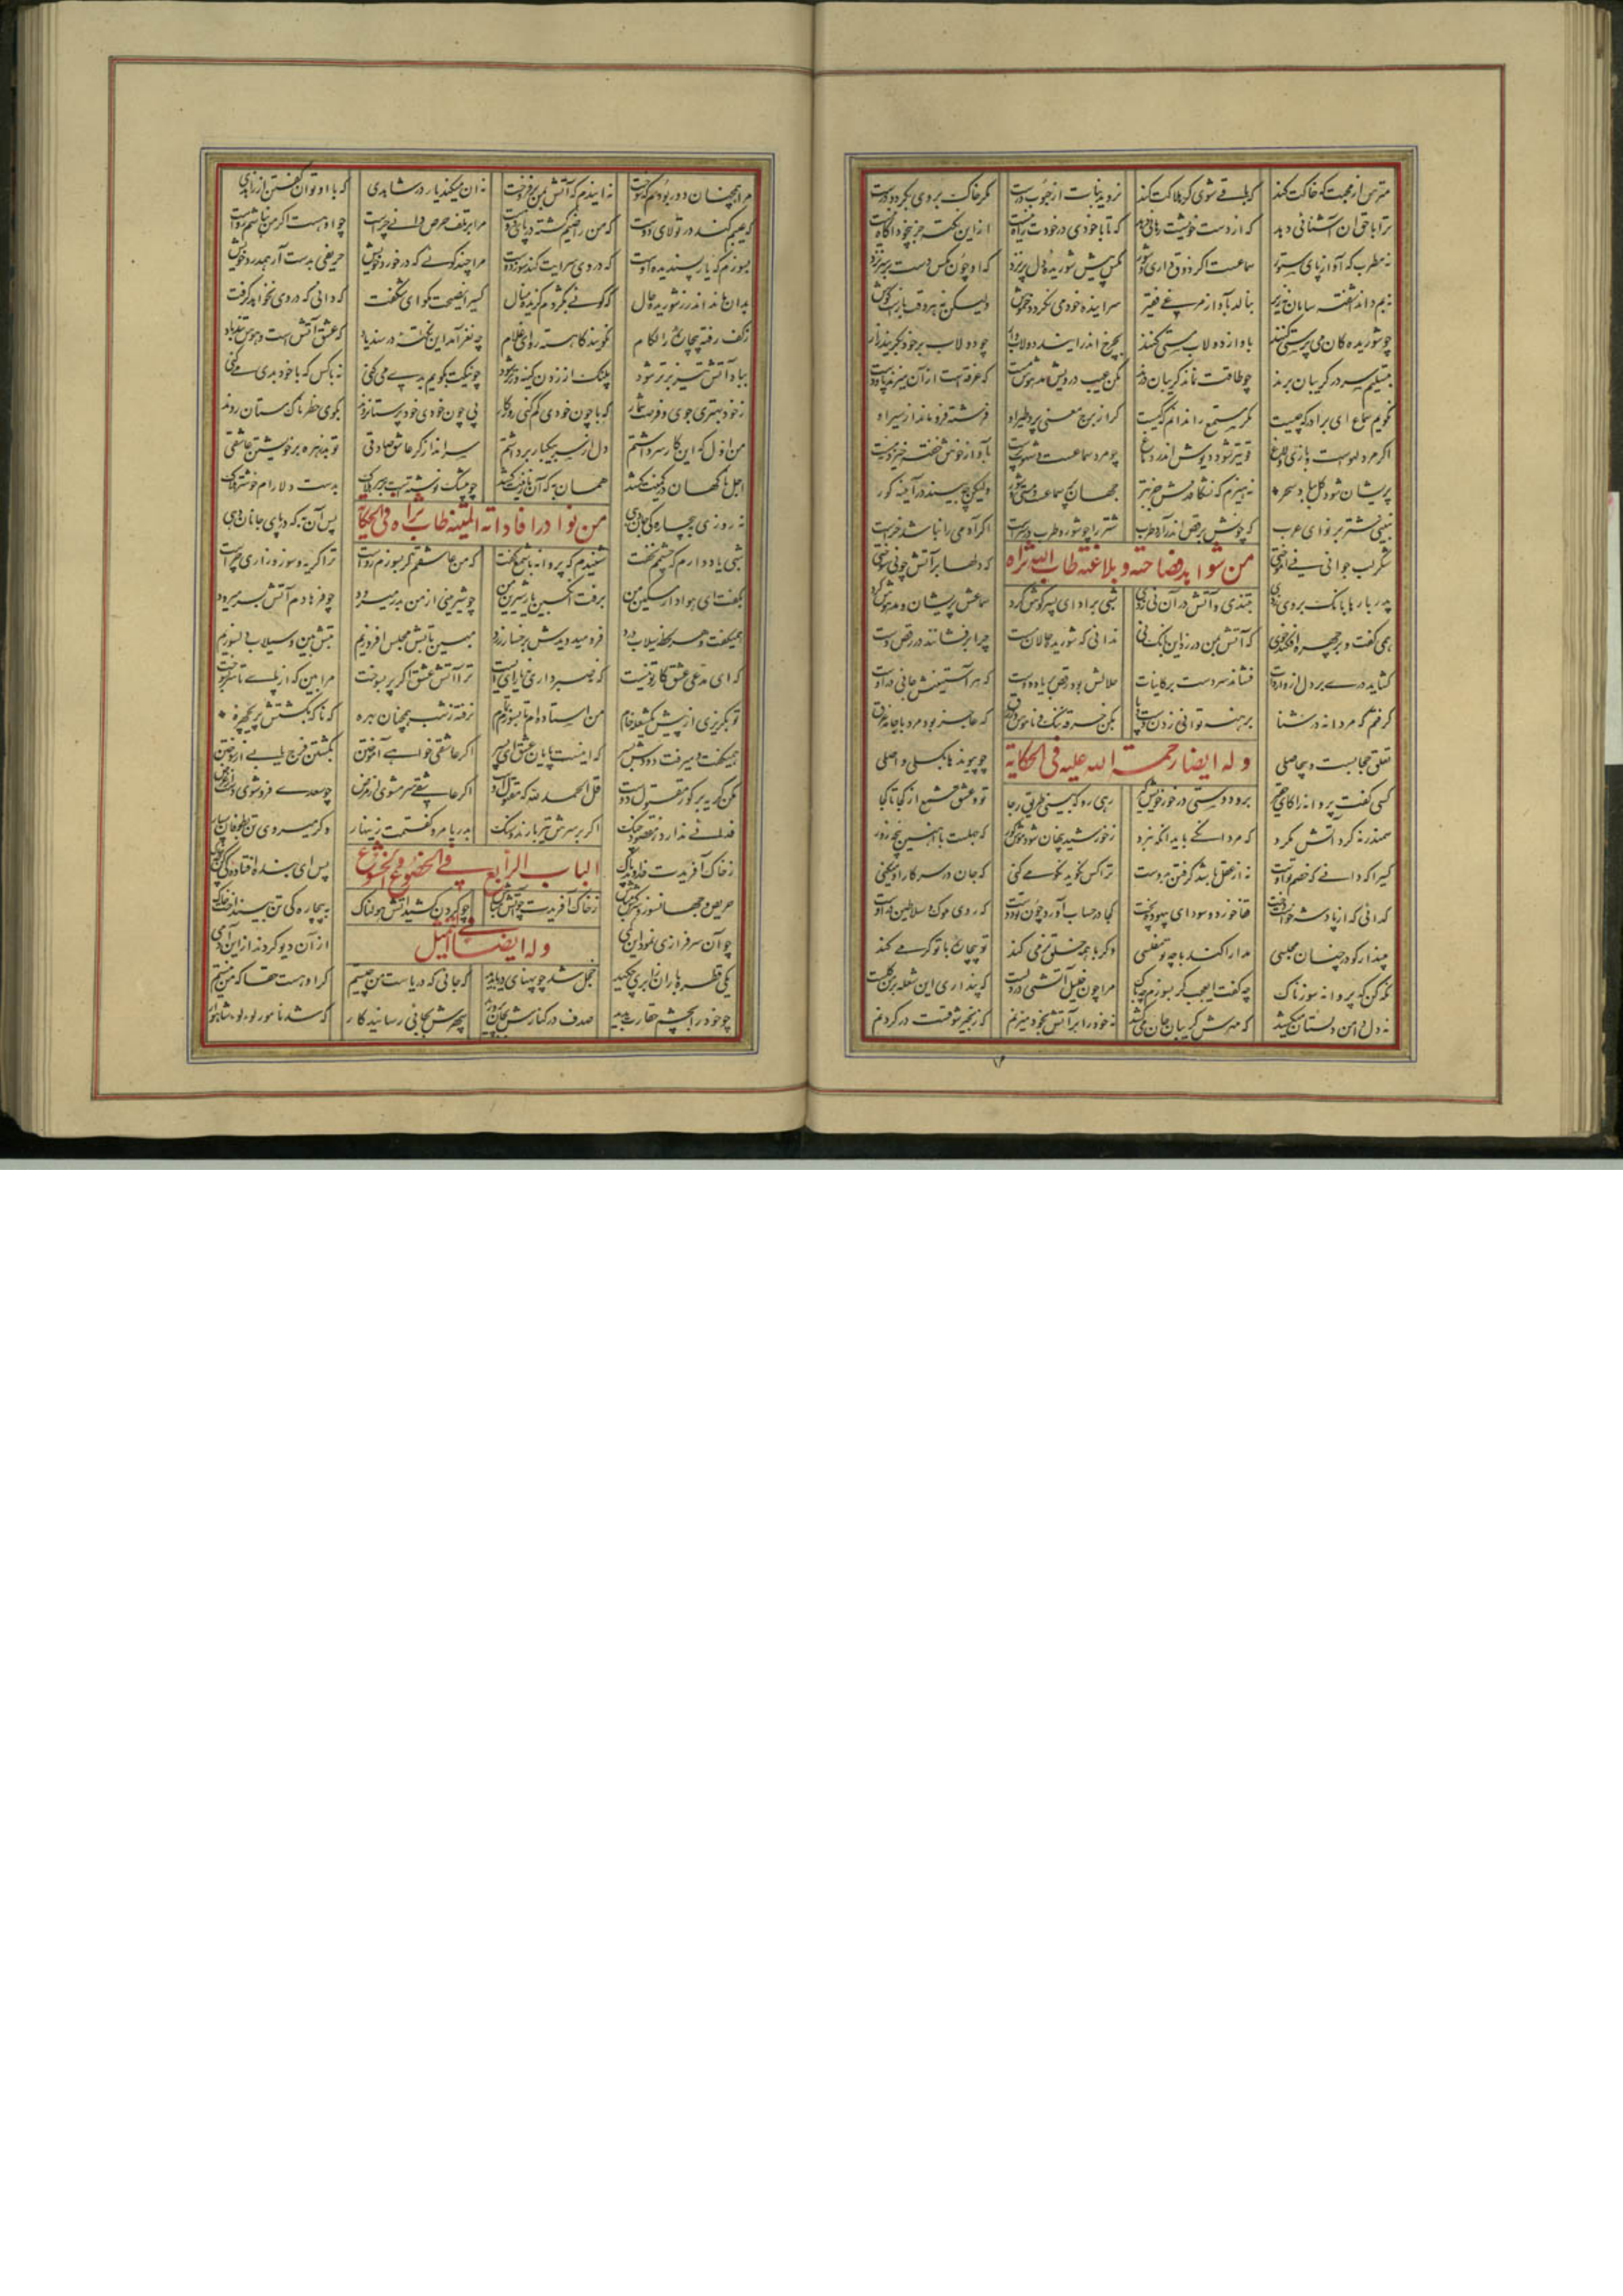 مترس از محبت که خاکت کند که باقی شوی کر هلاکت کند نروید نبات از حبوب درست کر خاک بروی بکردد درست
ترا با حق آن آشنائی دهد که از دست خویشت رهائی دهد که تا با خودی در خودت راه نیست ازین نکته جز بیخود آکاه نیست
نه مطرب که آواز پای ستور سماعست اکر ذوق داری و شور مکس پیش شوریده دل پر نزد که او چون مکس دست بر سر نزد
نه بم داند آشفته سامان نه زیر بنالد بآواز مرغی فقیر سراینده خود می نکردد خموش ولیکن نه هر وقت بازست کوش
چو شوریده کان می پرستی کنند بآواز دولاب مستی کنند بچرخ اندر آیند دولاب وار چو دولاب بر خود بکریند زار
بتسلیم سر در کریبان برند چو طاقت نماند کریبان درند مکن عیب درویش مدهوش مست که غرقه است از آن میزند پا و دست
نکویم سماع ای برادر که چیست مکر مستمع را بدانم که کیست کر از برج معنی پرد طیر او فرشته فرو ماند از سیر او
اکر مرد لهوست و بازی و لاغ قویتر شود دیوش اندر دماغ چو مرد سماعست شهوت پرست بآواز خوش خفته خیزد نه مست
پریشان شود کل بباد سحر نه هیزم که نشکافدش جز تبر جهان پر سماعست و مستی و شور ولیکن چه بیند در آینه کور
نبینی شتر بر نوای عرب که چونش برقص اندر آرد طرب شتر را چو شور و طرب در سرست اکر آدمی را نباشد خرست
من شواید فصاحته و بلاغته طاب الله ثراه
شکر لب جوانی نی آموختی که دلها بر آتش چو نی سوختی
پدر بارها بانک بر وی زدی بتندی و آتش در آن نی زدی شبی بر ادای پسر کوش کرد سماعش پریشان و مدهوش کرد
همی کفت و بر چهره افکنده خوی که آتش بمن در زد این بانک نی ندانی که شوریده حالان مست چرا برفشانند در رقص دست
کشاید دری بر دل از واردات فشاند سر دست بر کاینات حلالش بود رقص بر یاد دوست که هر آستینیش جانی دروست
کرفتم که مردانه در شنا برهنه توانی زدن دست و پا بکن خرقه ننک و ناموس و زرق که عاجز بود مرد با جامه غرق
تعلق حجابست و بیحاصلی چو پیوندها بکسلی واصلی
وله ایضا رحمة الله علیه فی الحکایة
کسی کفت پروانه را کای حقیر برو دوستی در خور خویش کیر رهی رو که بینی طریق رجا تو و عشق شمع از کجا تا کجا
سمندر نه کرد آتش مکرد که مردانکی باید آنکه نبرد ز خورشید پنهان شود موش کور که جهلست با آهنین پنجه زور
کسی را که دانی که خصم تو اوست نه از عقل باشد کرفتن بدوست ترا کس نکوید نکو می کنی که جان در سر کار او میکنی
کدائی که از پادشه خواست دخت قفا خورد و سودای بیهوده پخت کجا در حساب آورد چون تو دوست که روی ملوک و سلاطین دروست
مپندار کو در چنان مجلسی مدارا کند با چو تو مفلسی وکر با همه خلق نرمی کند تو بیچاره با تو کرمی کند
نکه کن که پروانه سوزناک چه کفت ای عجب کر بسوزم چه باک مرا چون خلیل آتشی در دلست که پنداری این شعله بر من کلست
نه دل دامن دلستان میکشد که مهرش کریبان جان میکشد نه خود را بر آتش بخود میزنم که زنجیر شوقست در کردنم
مرا همچنان دور بودم که سوخت نه ایندم که آتش بمن برفروخت نه آن میکند یار در شاهدی که با او توان کفتن از زاهدی
که عیبم کند در تولای دوست که من راضیم کشته در پای دوست مرا بر تلف حرص دانی چراست چو او هست اکر من نباشم رواست
بسوزم که یار پسندیده اوست که در وی سرایت کند سوز دوست مرا چند کوئی که در خورد خویش حریفی بدست آر همدرد خویش
بدان ماند اندرز شوریده حال که کوئی بکژدم کزیده منال کسی را نصیحت مکو ای شکفت که دانی که در وی نخواهد کرفت
ز کف رفته بیچاره را لکام نکویند کاهسته ران ای غلام چه نغز آمد این نکته در سندباد که عشق آتش است و هوس تندباد
بباد آتش تیز برتر شود پلنک از زدن کینه ورتر شود چو نیکت بکویم بدی می کنی نه با کس که با خود بدی میکنی
ز خود بهتری جوی و فرصت شمار که با چون خودی کم کنی روزکار پی چون خودی خودپرستان روند بکوی خطرناک مستان روند
من اول که این کار سر داشتم دل از سر بیکبار برداشتم سرانداز کر عاشق صادقی تو بدزهره بر خویشتن عاشقی
اجل ناکهان در کمینت کشد همان به که آن نازنینت کشد چو بیشک نوشته است بر سر هلاک بدست دلارام خوشتر هلاک
نه روزی ببیچارکی جان دهی پس آن به که در پای جانان دهی
من نوادر افاداته المتینه طاب ثراه فی الحکایة
شبی یاد دارم که چشمم نخفت شنیدم که پروانه با شمع کفت که من عاشقم کر بسوزم رواست ترا کریه و سوز و زاری چراست
بکفت ای هوادار مسکین من برفت انکبین یار شیرین من چو شیرینی از من بدر میرود چو فرهادم آتش بسر میرود
همیکفت و هر لحظه سیلاب درد فرو میدویدش بر رخسار زرد مبین تابش مجلس افروزیم تبش بین و سیلاب دلسوزیم
که ای مدعی عشق کار تو نیست که نه صبر داری نه یارای ایست ترا آتش عشق اکر پر بسوخت مرا بین که از پای تا سر بسوخت
تو بکریزی از پیش یک شعله خام من استاده ام تا بسوزم تمام نرفته ز شب همچنان بهره که ناکه بکشتش پریچهره
همیکفت و میرفت دودش بسر که اینست پایان عشق ای پسر اکر عاشقی خواهی آموختن بکشتن فرج یابی از سوختن
مکن کریه بر کور مقتول دوست قل الحمد لله که مقبول اوست اکر عاشقی سر مشوی از مرض چو سعدی فرو شوی دست از غرض
فدائی ندارد ز مقصود چنک اکر بر سرش تیر بارند و سنک بدریا مرو کفتمت زینهار وکر میروی تن بطوفان سپار
الباب الرابع فی الخضوع و الخشوع
ز خاک آفریدت خداوند پاک پس ای بنده افتادکی کن چو خاک
حریص و جهانسوز و سرکش مباش ز خاک آفریدت چو آتش مباش چو کردن کشید آتش هولناک به بیچارکی تن بینداخت خاک
چو آن سرفرازی نمود این کمی از آن دیو کردند ازین آدمی
وله ایضا فی التمثیل
یکی قطره باران ز ابری چکید خجل شد چو پهنای دریا بدید که جائی که دریاست من چیستم کر او هست حقا که من نیستم
چو خود را بچشم حقارت بدید صدف در کنارش بجان پرورید سپهرش بجائی رسانید کار که شد نامور لولو شاهوار